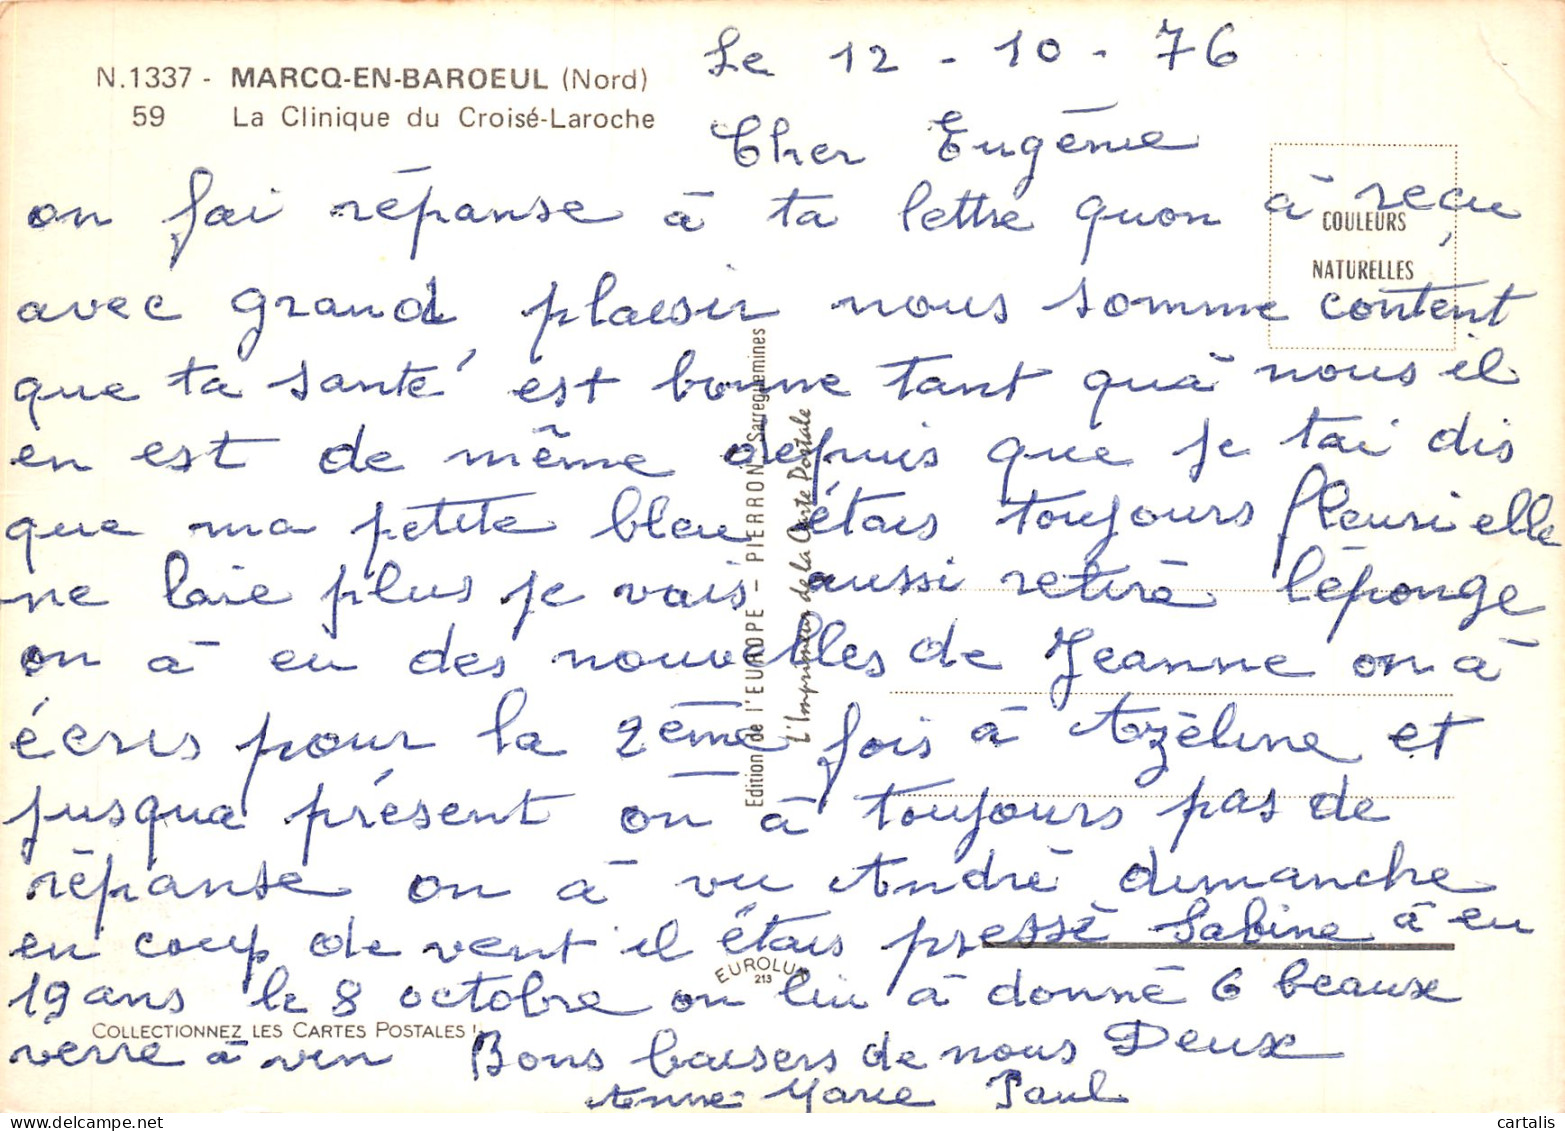 N.1337 - MARCQ-EN-BAROEUL (Nord)
59 La Clinique du Croisé-Laroche
Le 12 - 10 - 76
Cher Eugénie
on fai répanse à ta lettre quon à reçu
avec grand plaisir nous somme content
que ta santé est bonne tant quà nous il
en est de même depuis que je tai dis
que ma petite bleu étais toujours fleuri elle
ne laie plus je vais aussi retiré léponge
on à eu des nouvelles de Jeanne on à
écris pour la 2ème fois à Azéline et
jusqua présent on à toujours pas de
répanse on à vu André dimanche
en coup de vent il étais pressé Sabine à eu
19 ans le 8 octobre on lui à donné 6 beaux
verre à vin Bons baisers de nous Deux
Anne-Marie Paul
COULEURS
NATURELLES
Edition de l'EUROPE - PIERRON Sarreguemines
L'Imprimeur de la Carte Postale
EUROLUX
213
COLLECTIONNEZ LES CARTES POSTALES !
cartalis